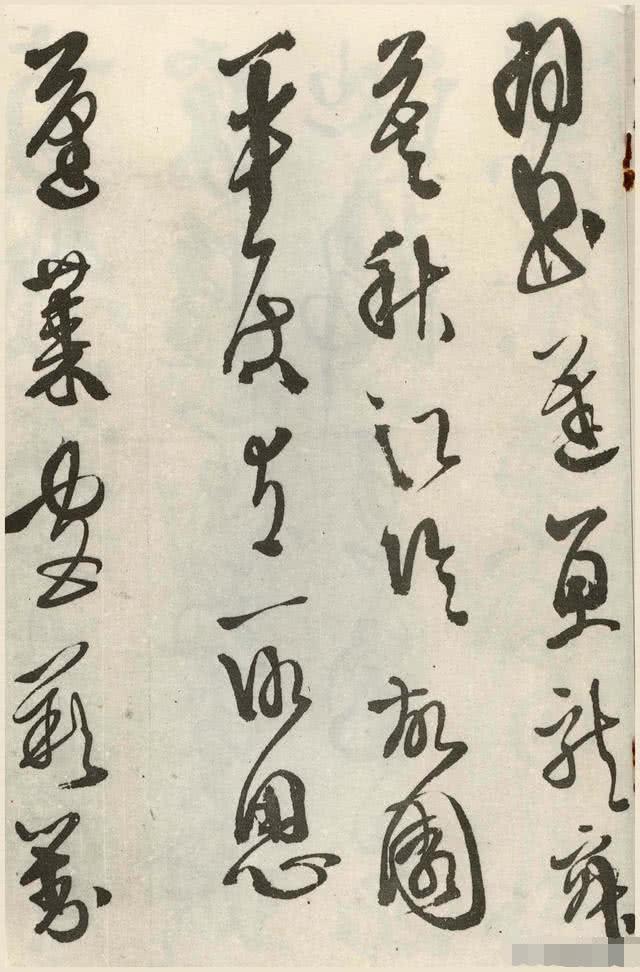 羽書遲魚龍寂
寞秋江冷故國
平居有所思
蓬萊宮闕對